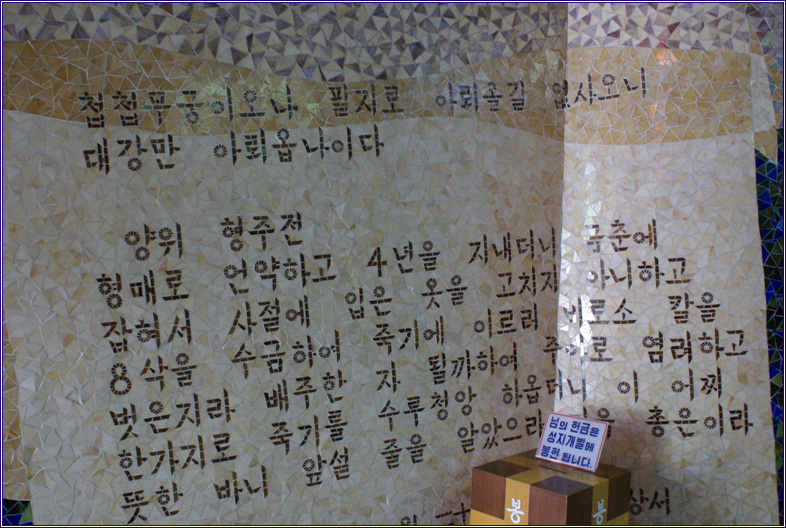 첩첩푸중이오나 필지로 아뢰올길 없사오니
대강만 아뢰옵나이다
양위 형주전
형매로 언약하고 4년을 지내더니 국춘에
잡혀서 사절에 입은 옷을 고치지 아니하고
8삭을 수금하여 죽기에 이르러 비르소 칼을
벗은지라 배주한 자 될까하여 주야로 염려하고
한가지로 죽기를 수루청앙 하옵더니 이 어찌
뜻한 바니 앞설 줄을 알았으리 총은이라
상서
님의 헌금은
성지개발에
봉헌 됩니다.
봉 봉